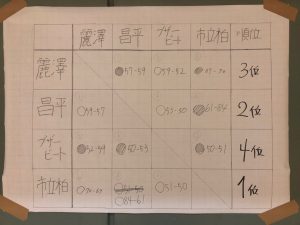 麗澤 昌平 ブザービート 市立柏 順位
麗澤 57-59 ○59-52 3位
昌平 ○59-57 ○53-50 61-84 2位
ブザービート 52-59 50-53 50-51 4位
市立柏 ○51-50 1位
○84-61